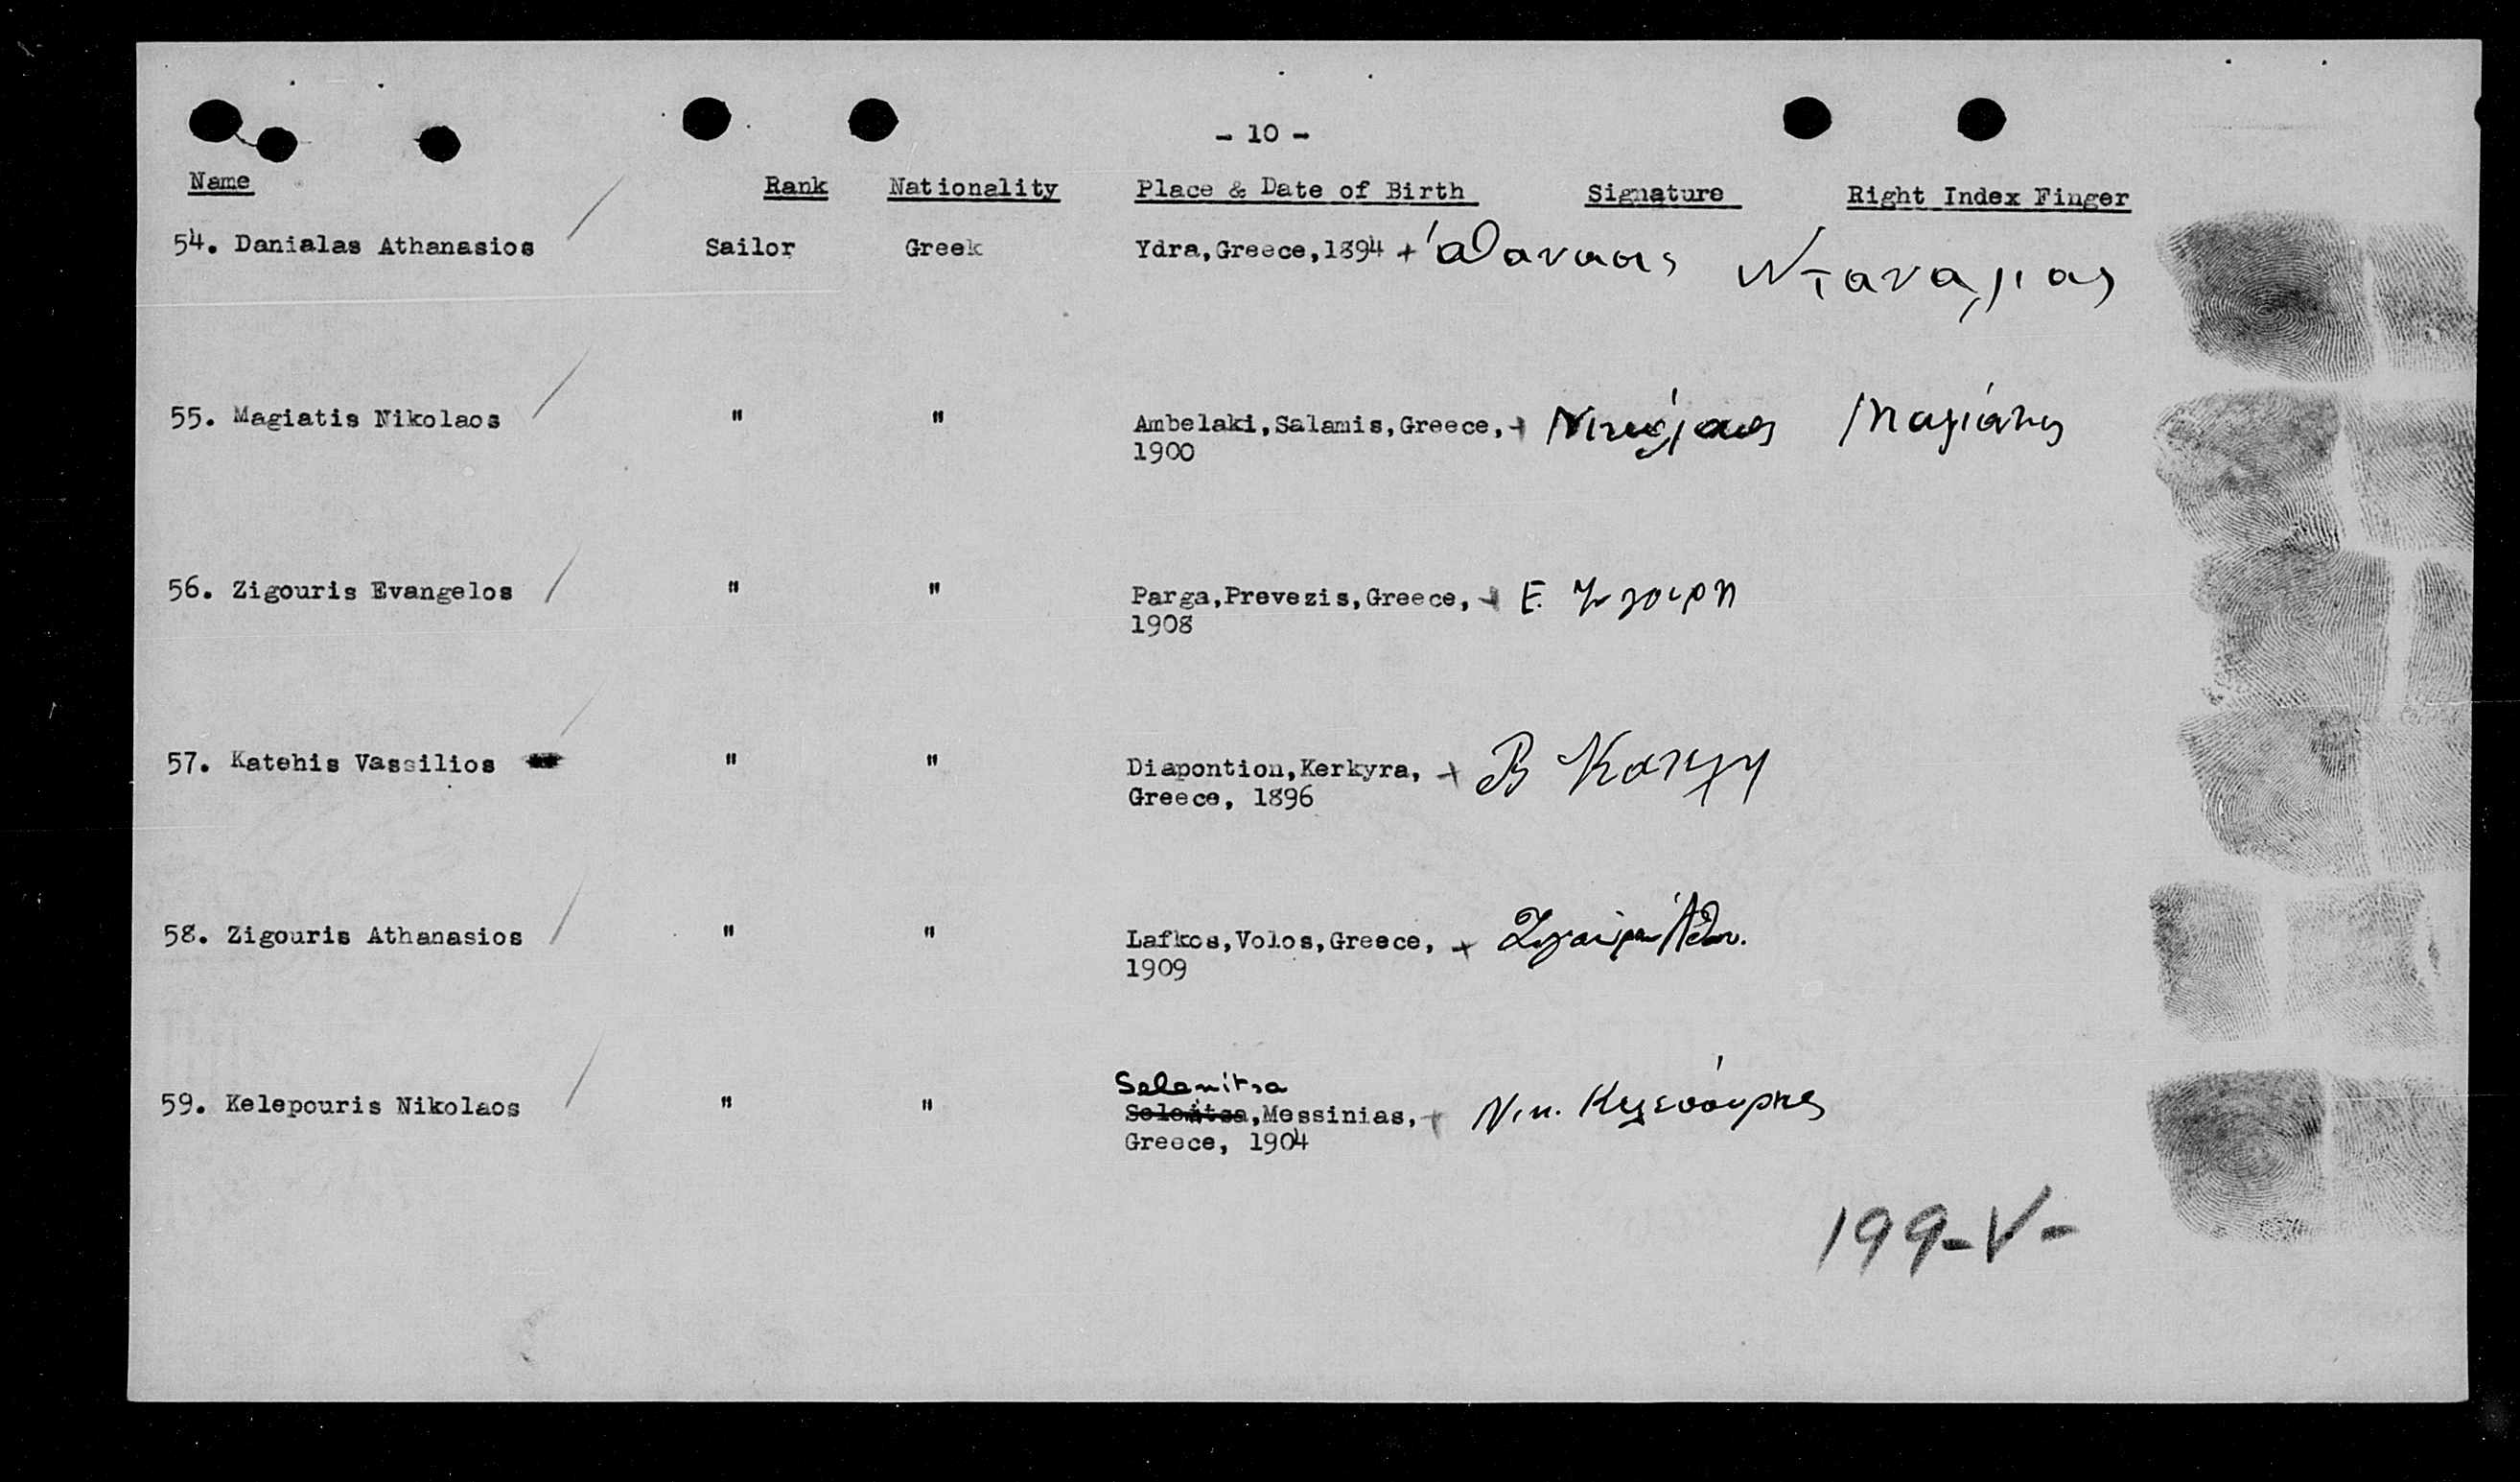 - 10 -
Name Rank Nationality Place & Date of Birth Signature Right Index Finger
54. Danialas Athanasios Sailor Greek Ydra,Greece,1894 +
55. Magiatis Nikolaos " " Ambelaki,Salamis,Greece, + Νικόλαος Μαγιάτης
1900
56. Zigouris Evangelos " " Parga,Prevezis,Greece, + Ε. Ζιγουρη
1908
57. Katehis Vassilios " " Diapontion,Kerkyra, + Β Κατεχη
Greece, 1896
58. Zigouris Athanasios " " Lafkos,Volos,Greece, +
1909
Selanitsa
59. Kelepouris Nikolaos " " Messinias, + Νικ. Κελεπούρης
Greece, 1904
199-V-